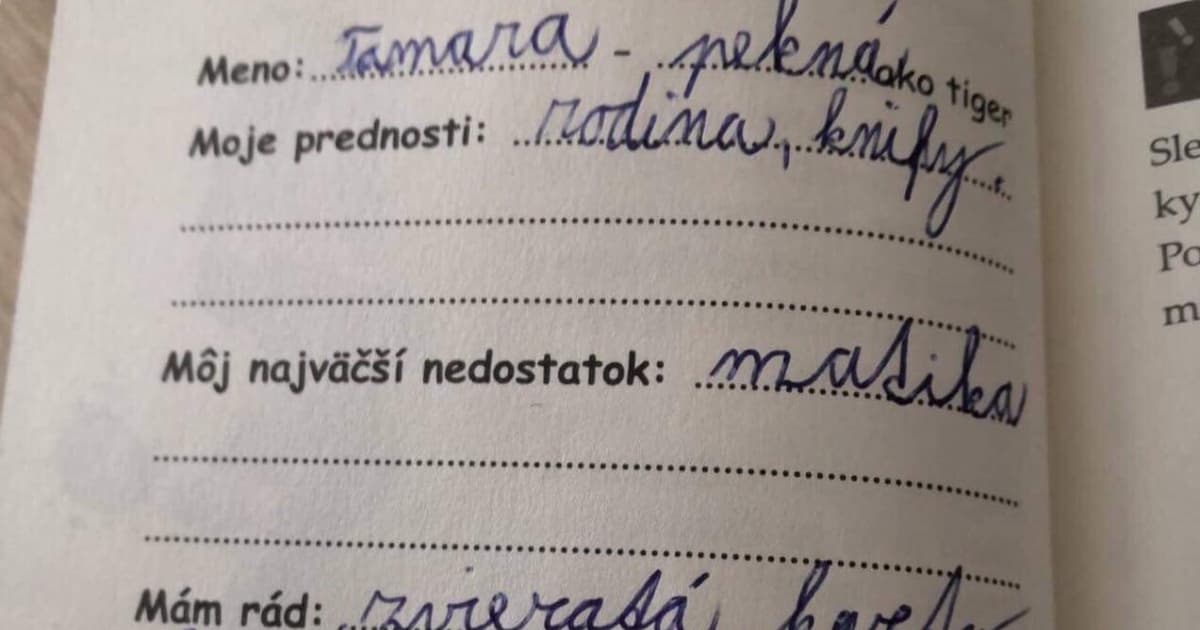 Meno: Tamara - pekná ako tiger
Moje prednosti: rodina, knihy
Môj najväčší nedostatok: matika
Mám rád: zvieratá,
Sle
ky
Po
m